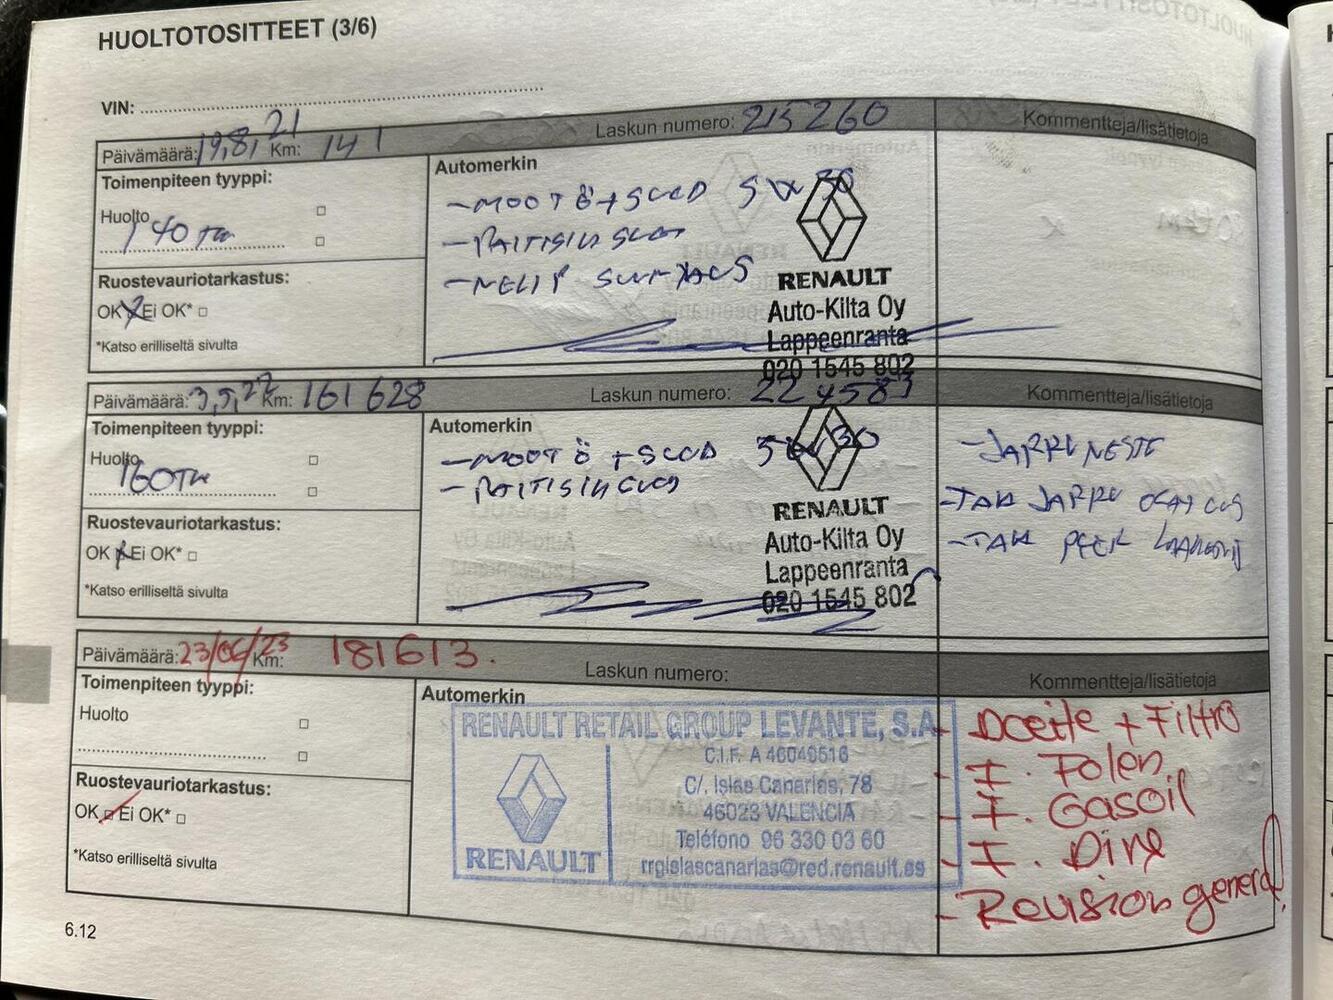 HUOLTOTOSITTEET (3/6)
VIN:
Päivämäärä: 19,8, 21 Km: 141 Laskun numero: 215260 Kommentteja/lisätietoja
Toimenpiteen tyyppi:
Huolto
140TKM
Ruostevauriotarkastus:
OK Ei OK*
*Katso erilliseltä sivulta
Automerkin
- MOOT Ö + SUOD 5W30
- RAITISILM SUOD
- NELIP SUUNTAUS
RENAULT
Auto-Kilta Oy
Lappeenranta
020 1545 802
Päivämäärä: 3,5,22 Km: 161 628 Laskun numero: 224583 Kommentteja/lisätietoja
Toimenpiteen tyyppi:
Huolto
160TKM
Ruostevauriotarkastus:
OK Ei OK*
*Katso erilliseltä sivulta
Automerkin
- MOOT Ö + SUOD 5W30
- RAITISILM SUOD
RENAULT
Auto-Kilta Oy
Lappeenranta
020 1545 802
- JARRUNESTE
- TAK JARRU
- TAK
Päivämäärä: 23/06/23 Km: 181613. Laskun numero: Kommentteja/lisätietoja
Toimenpiteen tyyppi:
Huolto
Ruostevauriotarkastus:
OK Ei OK*
*Katso erilliseltä sivulta
Automerkin
RENAULT RETAIL GROUP LEVANTE, S.A.
C.I.F. A 46049516
C/. Islas Canarias, 78
46023 VALENCIA
Teléfono 96 330 03 60
rrgislascanarias@red.renault.es
RENAULT
- Aceite + Filtro
- F. Polen
- F. Gasoil
- F. Aire
- Revision general.
6.12